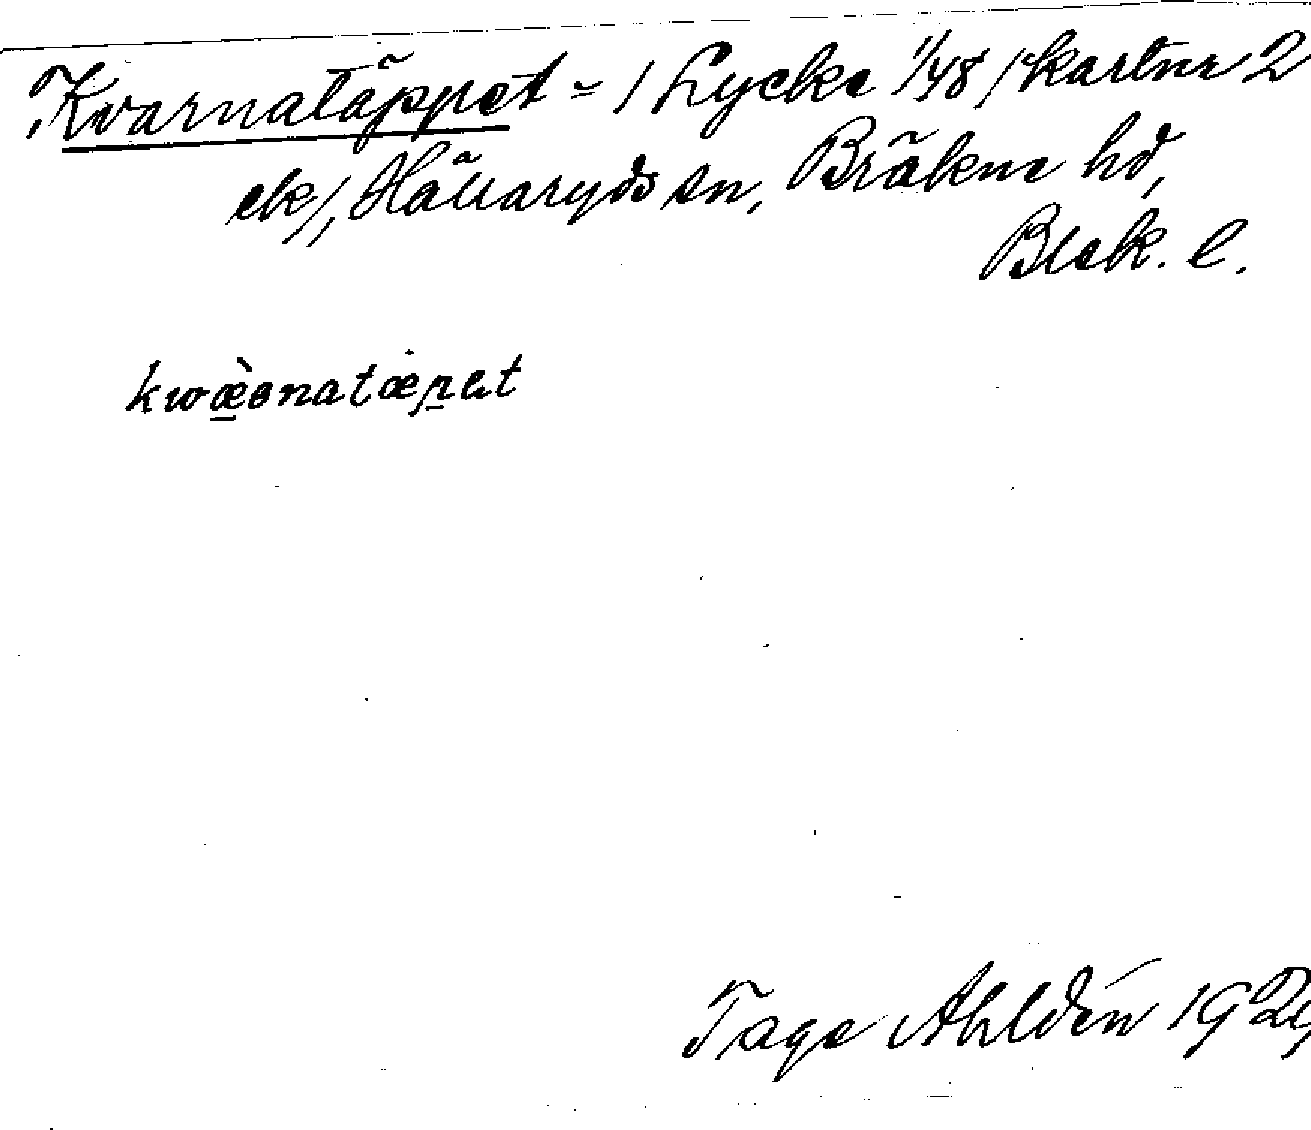 Kvarnatäppet = / Lycke 1/48 / kartnr 2
ek/, Hällaryds sn, Bräkne hd,
Blek. l.
kwæ̀ɐnatæpət
Tage Ahldén 192